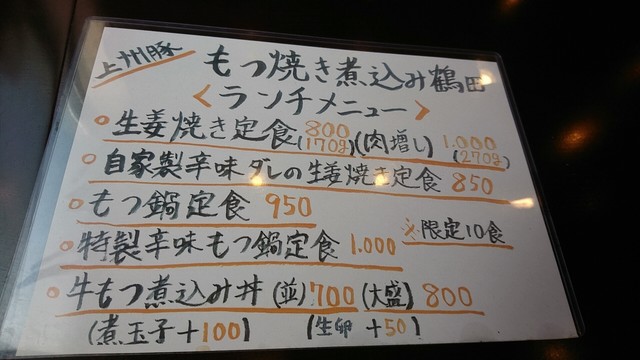 上州豚
もつ焼き煮込み鶴田
＜ランチメニュー＞
○生姜焼き定食800(170g)(肉増し)1.000(270g)
○自家製辛味ダレの生姜焼き定食 850
○もつ鍋定食 950
※限定10食
○特製辛味もつ鍋定食 1.000
○牛もつ煮込み丼(並)700(大盛)800
(煮玉子+100)(生卵+50)